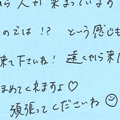 ら人が来まっているの
のでは!? という感じも
来て下さいね! 遠くから来
まめてくれますよ♡
頑張ってくださいね☺